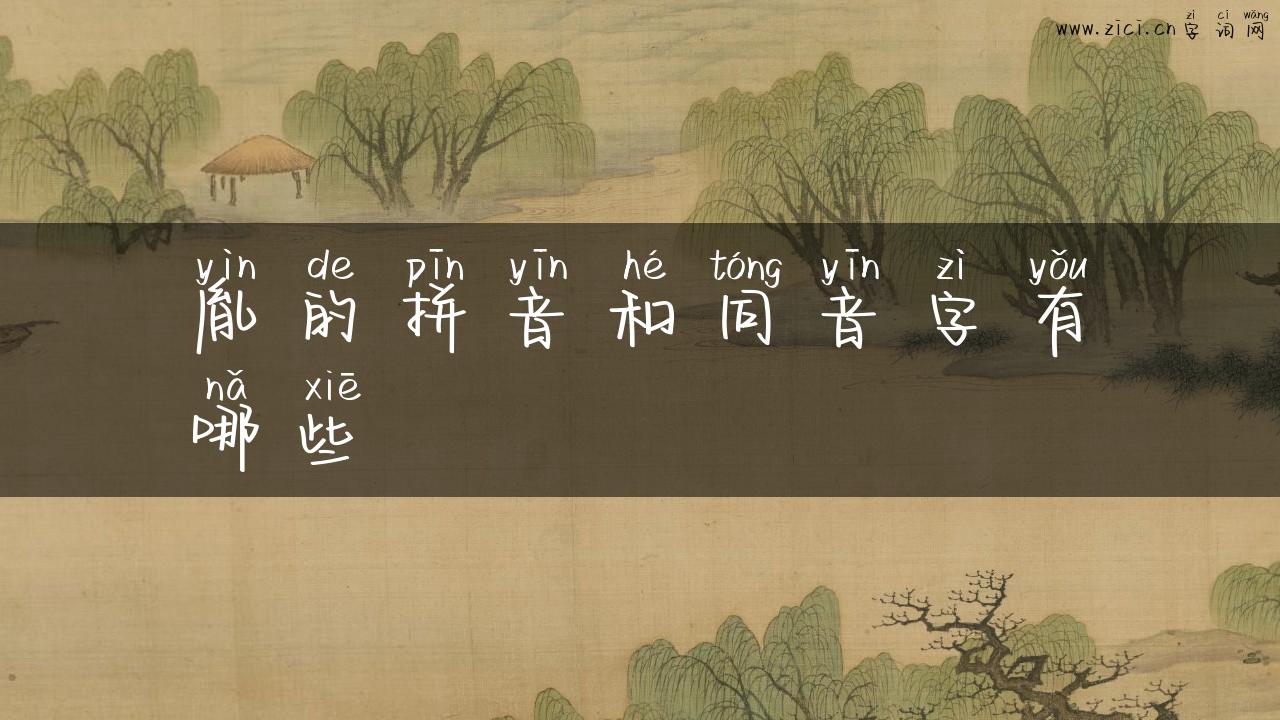 zì cí wǎng
www.zici.cn 字词网
yìn de pīn yīn hé tóng yīn zì yǒu
胤的拼音和同音字有
nǎ xiē
哪些